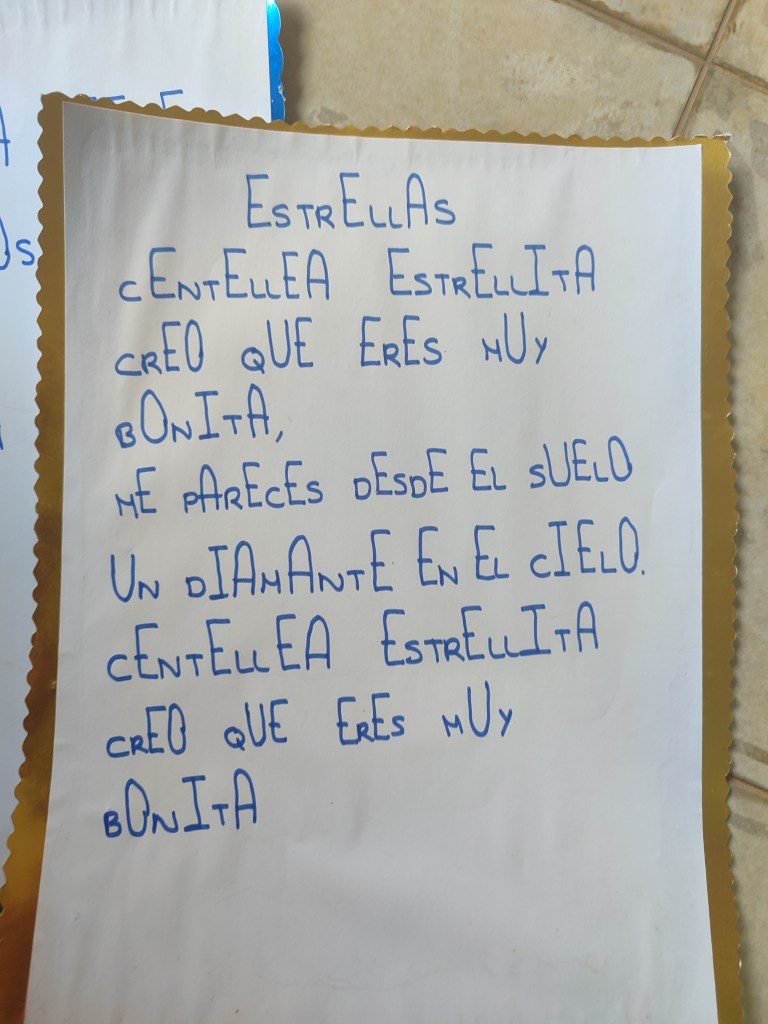 ESTRELLAS
CENTELLEA ESTRELLITA
CREO QUE ERES MUY
BONITA,
ME PARECES DESDE EL SUELO
UN DIAMANTE EN EL CIELO.
CENTELLEA ESTRELLITA
CREO QUE ERES MUY
BONITA